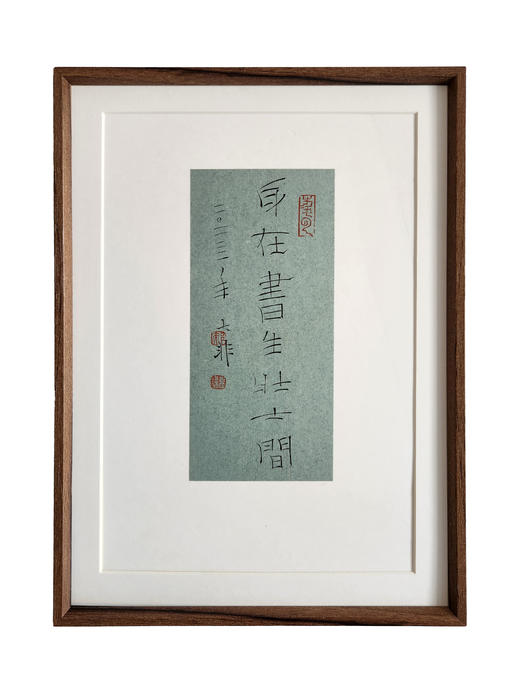 身在書生壯士間
二〇二三年 大非